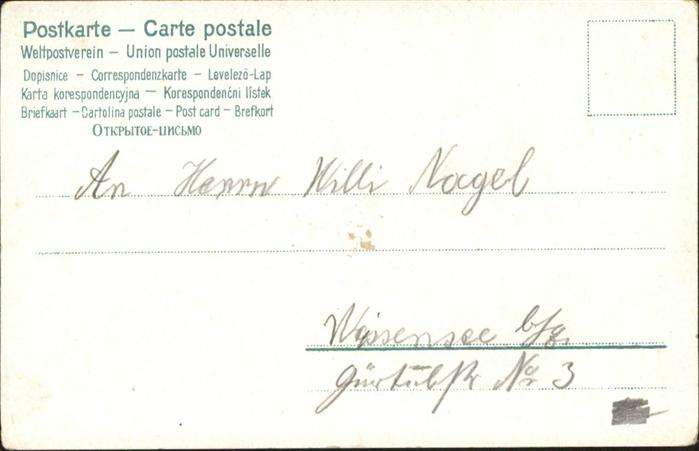 Postkarte — Carte postale
Weltpostverein — Union postale Universelle
Dopisnice — Correspondenzkarte — Levelező-Lap
Karta korespondencyjna — Korespondenční listek
Briefkaart — Cartolina postale — Post card — Brefkort
Открытое-письмо
An Herrn Willi Nagel
Weissensee
No 3